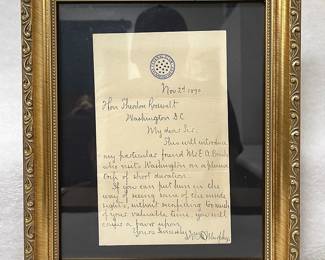 Nov 2d 1890
Hon Theodore Roosevelt
Washington D.C.
My dear Sir
This will introduce
my particular friend Mr E. A.
who visits Washington on a pleasure
trip of short duration.
If you can put him in the
way of seeing some of the inside
sights, without infringing too much
of your valuable time, you will
confer a favor upon
Yours Sincerely